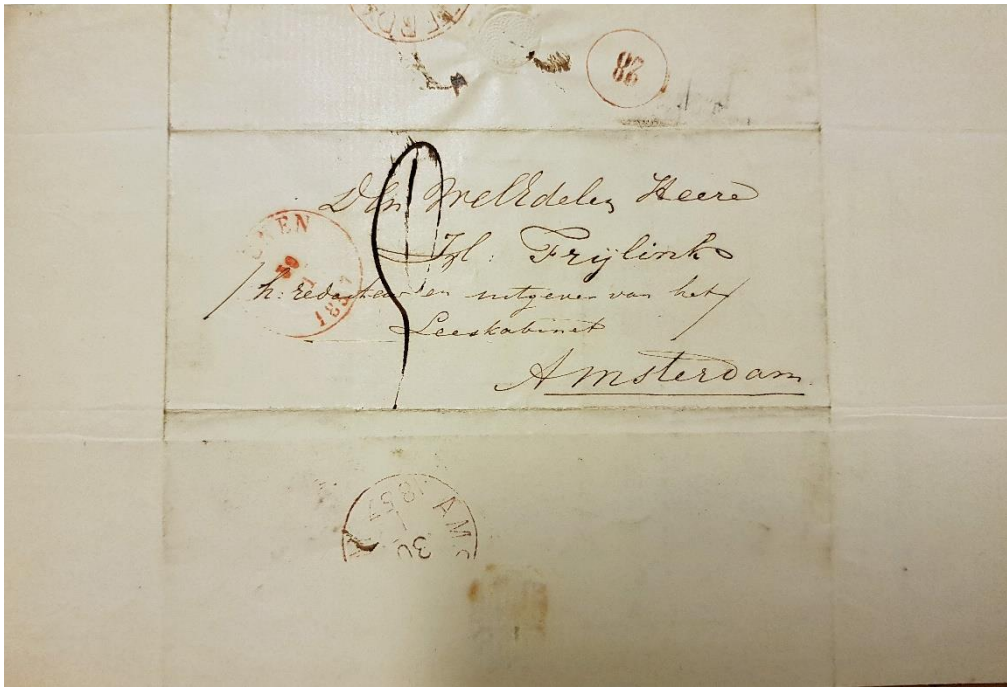 28
Den WelEdelen Heere
Frijlink
/ h: redacteur en uitgever van het /
Leeskabinet
Amsterdam
AMS
30